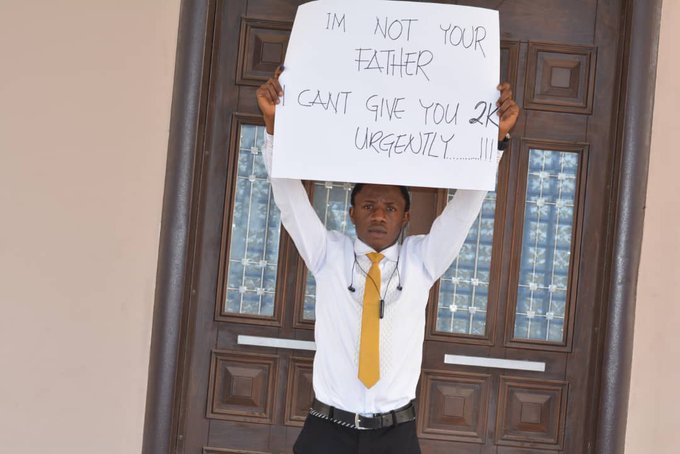 IM NOT YOUR
FATHER
I CANT GIVE YOU 2K
URGENTLY...........!!!